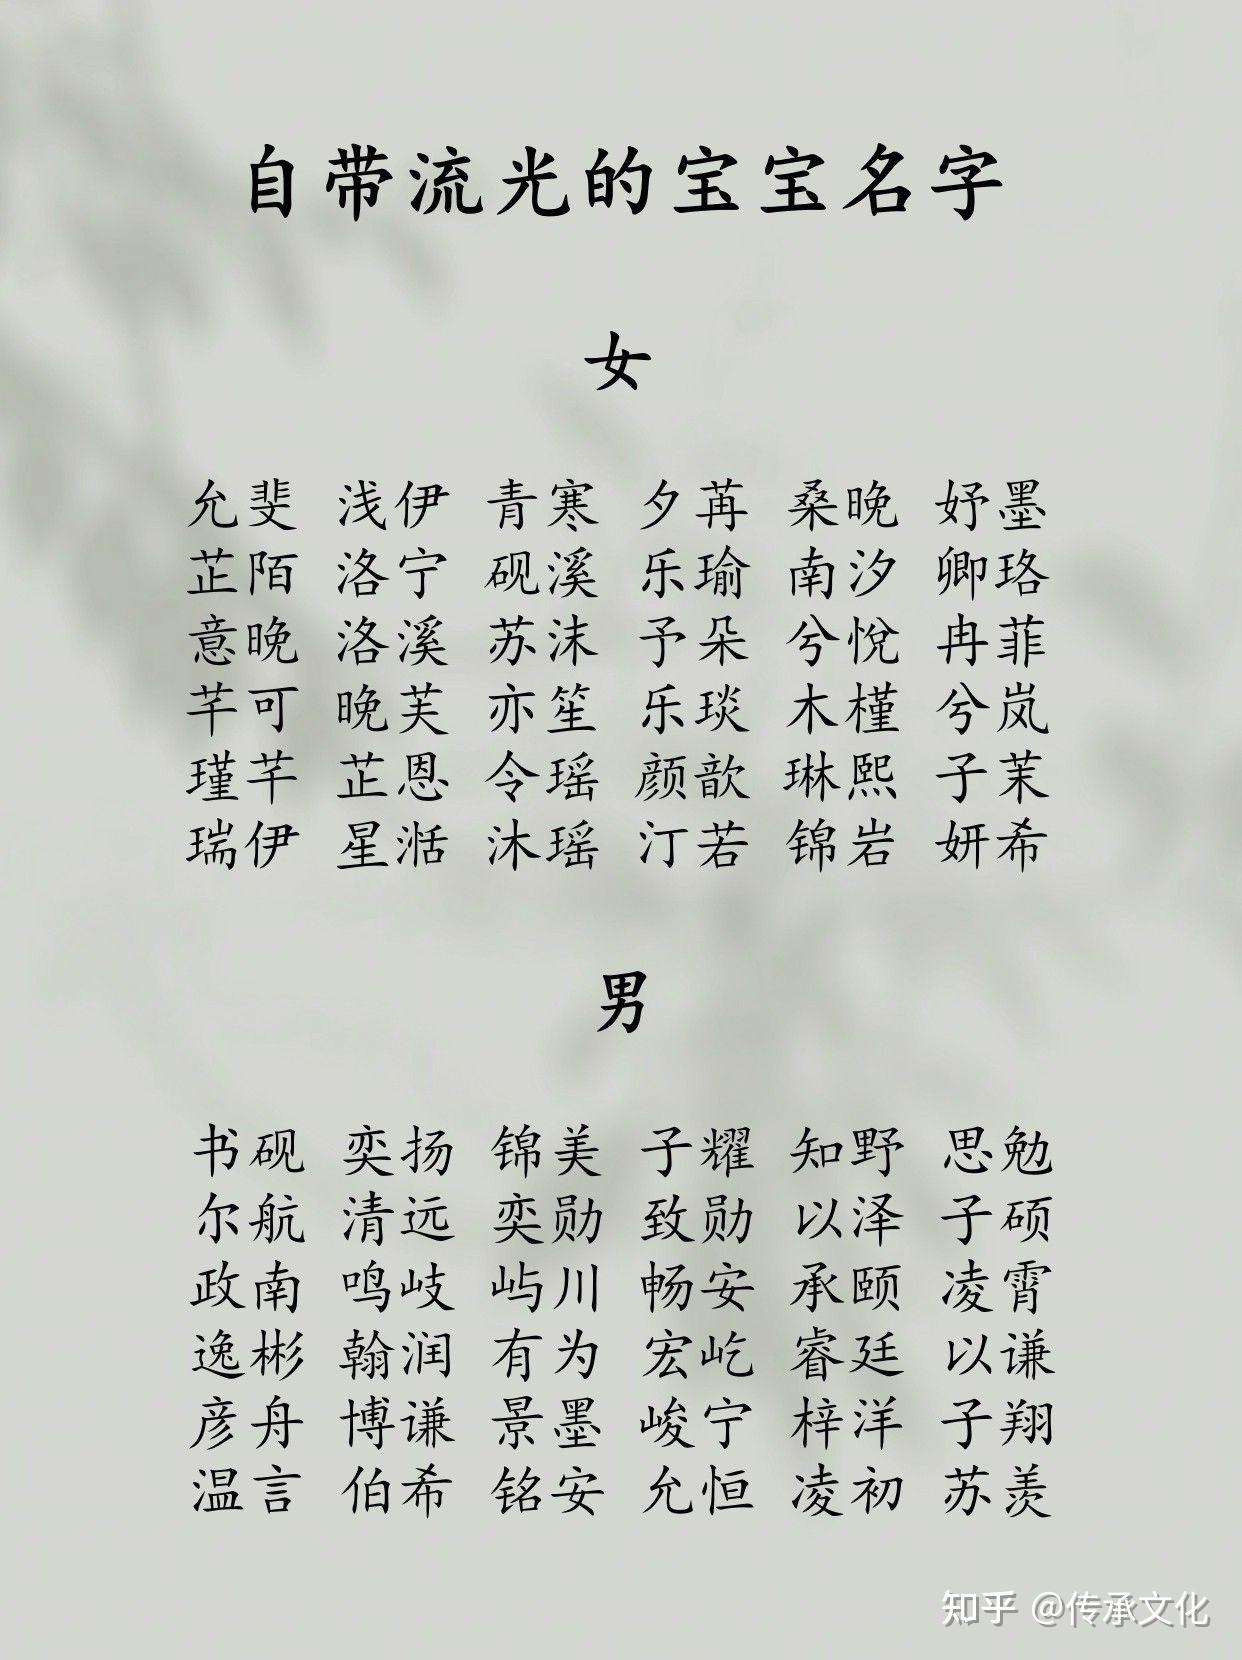 自带流光的宝宝名字
女
允斐 浅伊 青寒 夕苒 桑晚 妤墨
芷陌 洛宁 砚溪 乐瑜 南汐 卿珞
意晚 洛溪 苏沫 予朵 兮悅 冉菲
芊可 晚芙 亦笙 乐琰 木槿 兮岚
瑾芊 芷恩 令瑶 颜歆 琳熙 子茉
瑞伊 星湉 沐瑶 汀若 锦岩 妍希
男
书砚 奕扬 锦美 子耀 知野 思勉
尔航 清远 奕勋 致勋 以泽 子硕
政南 鸣岐 屿川 畅安 承颐 凌霄
逸彬 翰润 有为 宏屹 睿廷 以谦
彦舟 博谦 景墨 峻宁 梓洋 子翔
温言 伯希 铭安 允恒 凌初 苏羡
知乎 @传承文化